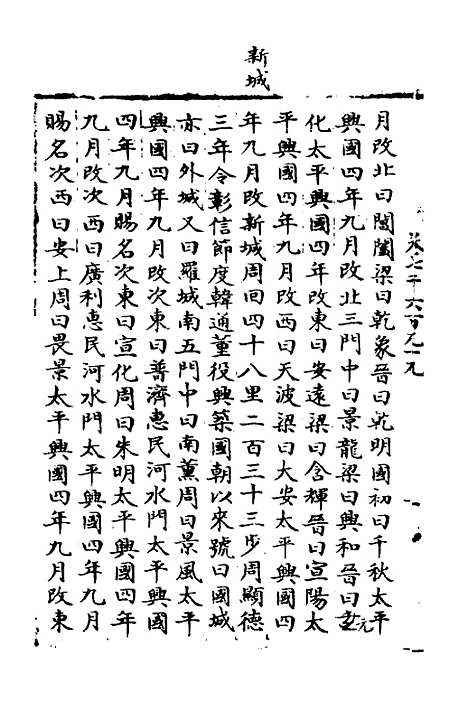 新城
月改北曰閶闔梁曰乾象晉曰乾明國初曰千秋太平
興國四年九月改北三門中曰景龍梁曰興和晉曰玄
元
化太平興國四年改東曰安遠梁曰含輝晉曰宣陽太
平興國四年九月改西曰天波梁曰大安太平興國四
年九月改新城周回四十八里二百三十三步周顯德
三年令彰信節度韓通董役興築國朝以來號曰國城
亦曰外城又曰羅城南五門中曰南薰周曰景風太平
興國四年九月改次東曰普濟惠民河水門太平興國
四年九月賜名次東曰宣化周曰朱明太平興國四年
九月改次西曰廣利惠民河水門太平興國四年九月
賜名次西曰安上周曰畏景太平興國四年九月改東